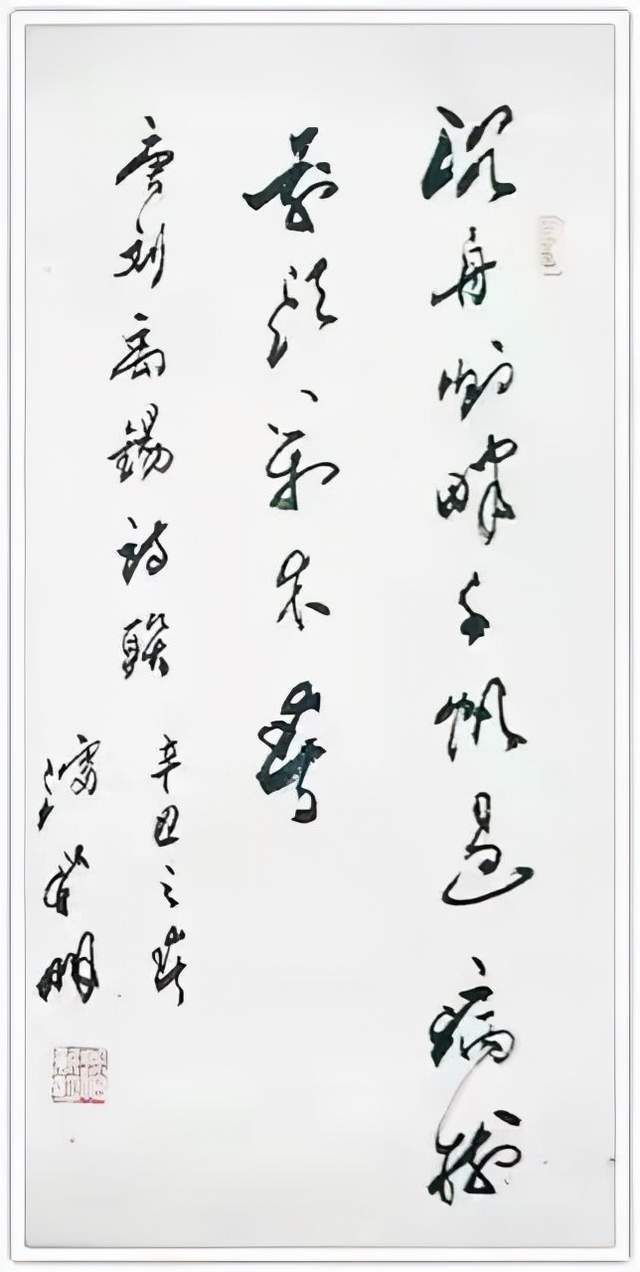 沉舟侧畔千帆過病樹
前頭萬木春
唐刘禹錫詩聯
辛丑之春
明